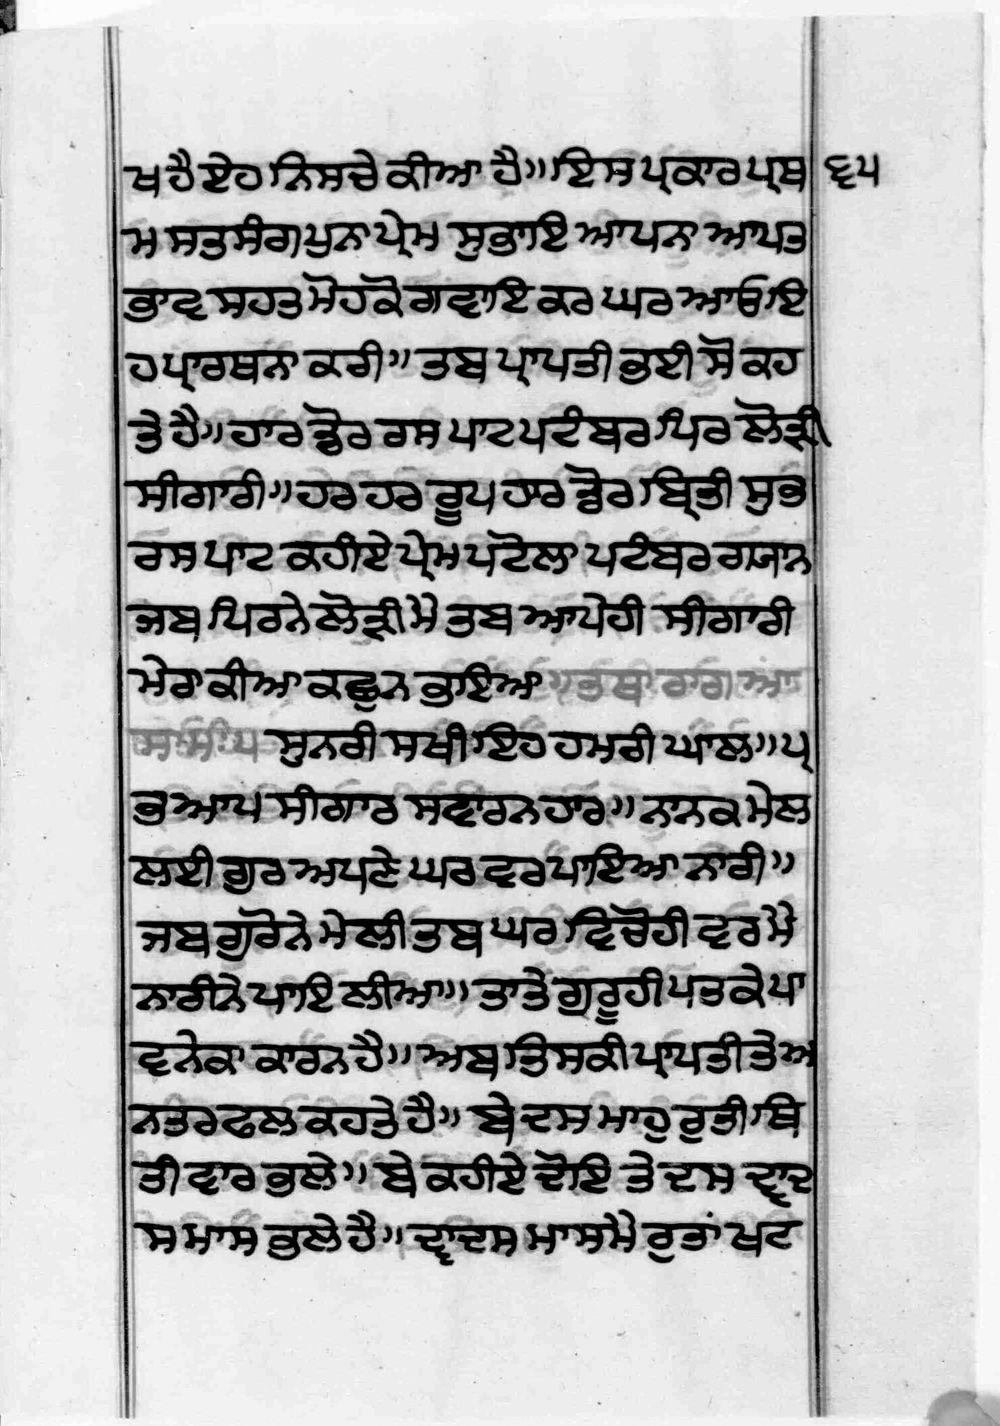 ਖ ਹੈ ਏਹ ਨਿਸਚੇ ਕੀਆ ਹੈ॥ ਇਸ ਪ੍ਰਕਾਰ ਪ੍ਰਥ ੬੫
ਮ ਸਤਸੰਗ ਪੁਨਾ ਪ੍ਰੇਮ ਸੁਭਾਇ ਆਪਨਾ ਆਪਤ
ਭਾਵ ਸਹਤ ਮੋਹ ਕੋ ਗਵਾਇ ਕਰ ਘਰ ਆਓ ਇ
ਹ ਪ੍ਰਾਰਥਨਾ ਕਰੀ॥ ਤਬ ਪ੍ਰਾਪਤੀ ਭਈ ਸੋ ਕਹ
ਤੇ ਹੈ॥ ਹਾਰ ਡੋਰ ਰਸ ਪਾਟ ਪਟੰਬਰ ਪਿਰ ਲੋੜੀ
ਸੀਗਾਰੀ॥ ਹਰ ਹਰ ਰੂਪ ਹਾਰ ਡੋਰ ਬ੍ਰਿਤੀ ਸੁਭ
ਰਸ ਪਾਟ ਕਹੀਏ ਪ੍ਰੇਮ ਪਟੋਲਾ ਪਟੰਬਰ ਗਯਾਨ
ਜਬ ਪਿਰ ਨੇ ਲੋੜੀ ਮੈ ਤਬ ਆਪੇ ਹੀ ਸੀਗਾਰੀ
ਮੇਰਾ ਕੀਆ ਕਛੁ ਨ ਭਾਇਆ ॥ ਤਥਾ ਰਾਗ ਆ
ਸੁਨਰੀ ਸਖੀ ਇਹ ਹਮਰੀ ਘਾਲ॥ ਪ੍ਰ
ਭ ਆਪ ਸੀਗਾਰ ਸਵਾਰਨਹਾਰ॥ ਨਾਨਕ ਮੇਲ
ਲਈ ਗੁਰ ਅਪਣੇ ਘਰ ਵਰ ਪਾਇਆ ਨਾਰੀ॥
ਜਬ ਗੁਰੋ ਨੇ ਮੇਲੀ ਤਬ ਘਰ ਵਿਚੋ ਹੀ ਵਰ ਮੈ
ਨਾਰੀ ਨੇ ਪਾਇ ਲੀਆ॥ ਤਾਤੇ ਗੁਰੂ ਹੀ ਪਤ ਕੇ ਪਾ
ਵਨੇ ਕਾ ਕਾਰਨ ਹੈ॥ ਅਬ ਤਿਸਕੀ ਪ੍ਰਾਪਤੀ ਤੇ ਅ
ਨਤਰ ਫਲ ਕਹਤੇ ਹੈ॥ ਬੇ ਦਸ ਮਾਹ ਰੁਤੀ ਥਿ
ਤੀ ਵਾਰ ਭਲੇ॥ ਬੇ ਕਹੀਏ ਦੋਇ ਤੇ ਦਸ ਦ੍ਵਾਦ
ਸ ਮਾਸ ਭਲੇ ਹੈ॥ ਦ੍ਵਾਦਸ ਮਾਸ ਮੈ ਰੁਤਾਂ ਖਟ